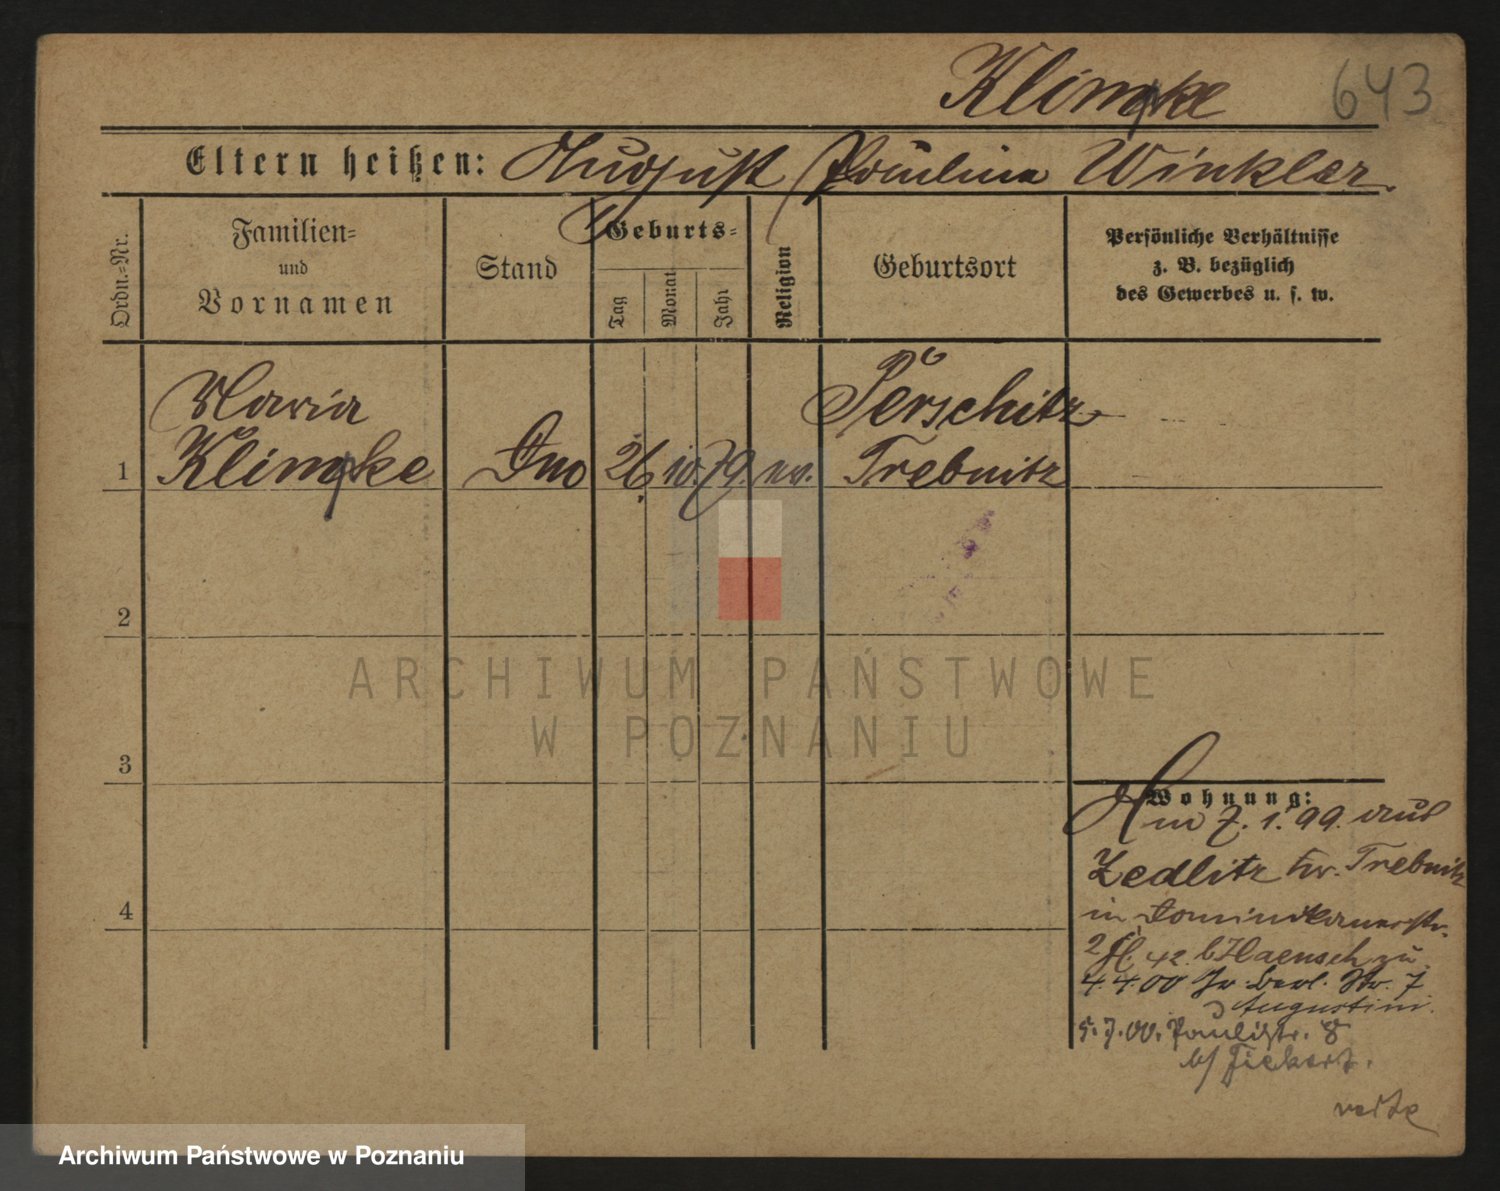 Klimpke 643
Eltern heißen: August Pauline Winkler.
Ordn.=Nr.
Familien= und Vornamen
Stand
Geburts=
Tag
Monat
Jahr
Religion
Geburtsort
Persönliche Verhältnisse
z. B. bezüglich
des Gewerbes u. s. w.
Maria Perschütz
1 Klimpke 26. 10. 79. ev. Trebnitz
2
ARCHIWUM PAŃSTWOWE
W POZNANIU
3
Wohnung:
7. 1. 99. aus
Zedlitz Kr. Trebnitz
4
in Dominikanerstr.
2 42 b/Haensch zu
4.4.00 Berl. Str. 7
Augustini.
5.7.00. Paulistr. 8
b/ Fickert.
Archiwum Państwowe w Poznaniu